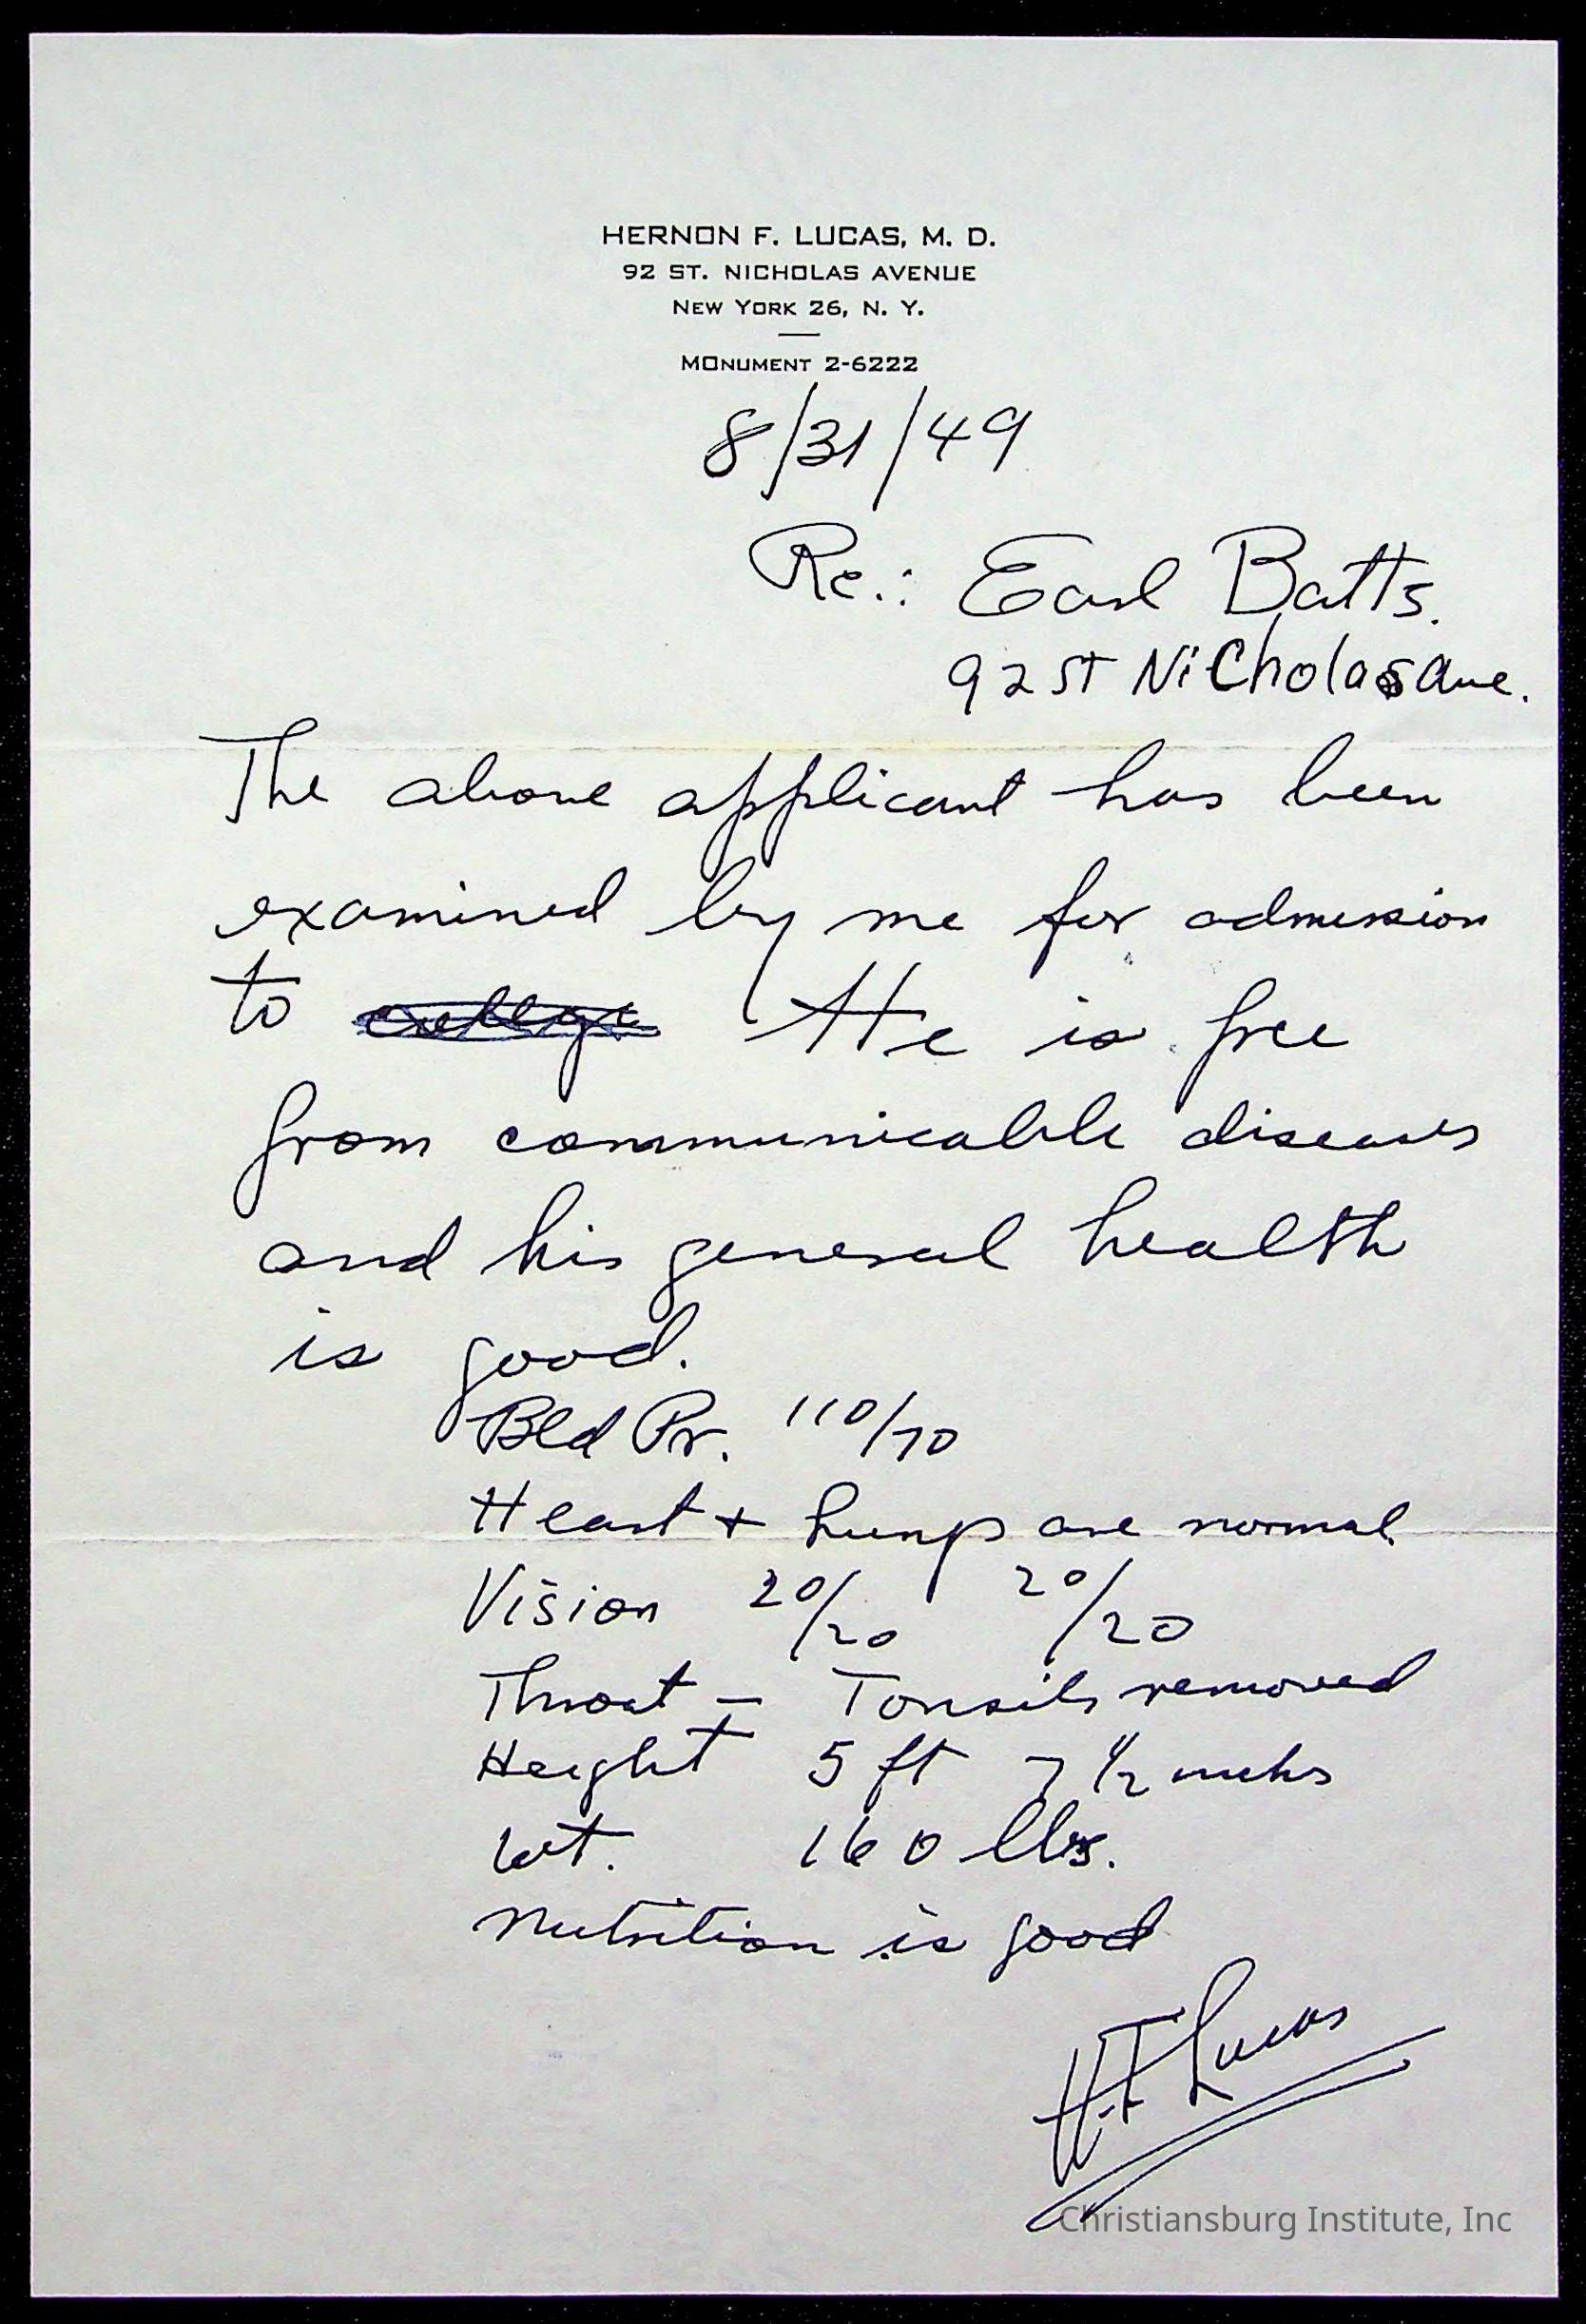 HERNON F. LUCAS, M. D.
92 ST. NICHOLAS AVENUE
NEW YORK 26, N. Y.
MONUMENT 2-6222
8/31/49
Re.: Earl Batts.
92 ST Nicholas Ave.
The above applicant has been
examined by me for admission
to college He is free
from communicable diseases
and his general health
is good.
Bld Pr. 110/70
Heart + Lungs are normal.
Vision 20/20 20/20
Throat - Tonsils removed
Height 5 ft 7 1/2 inches
Wt. 160 lbs.
Nutrition is good
H.F. Lucas
Christiansburg Institute, Inc